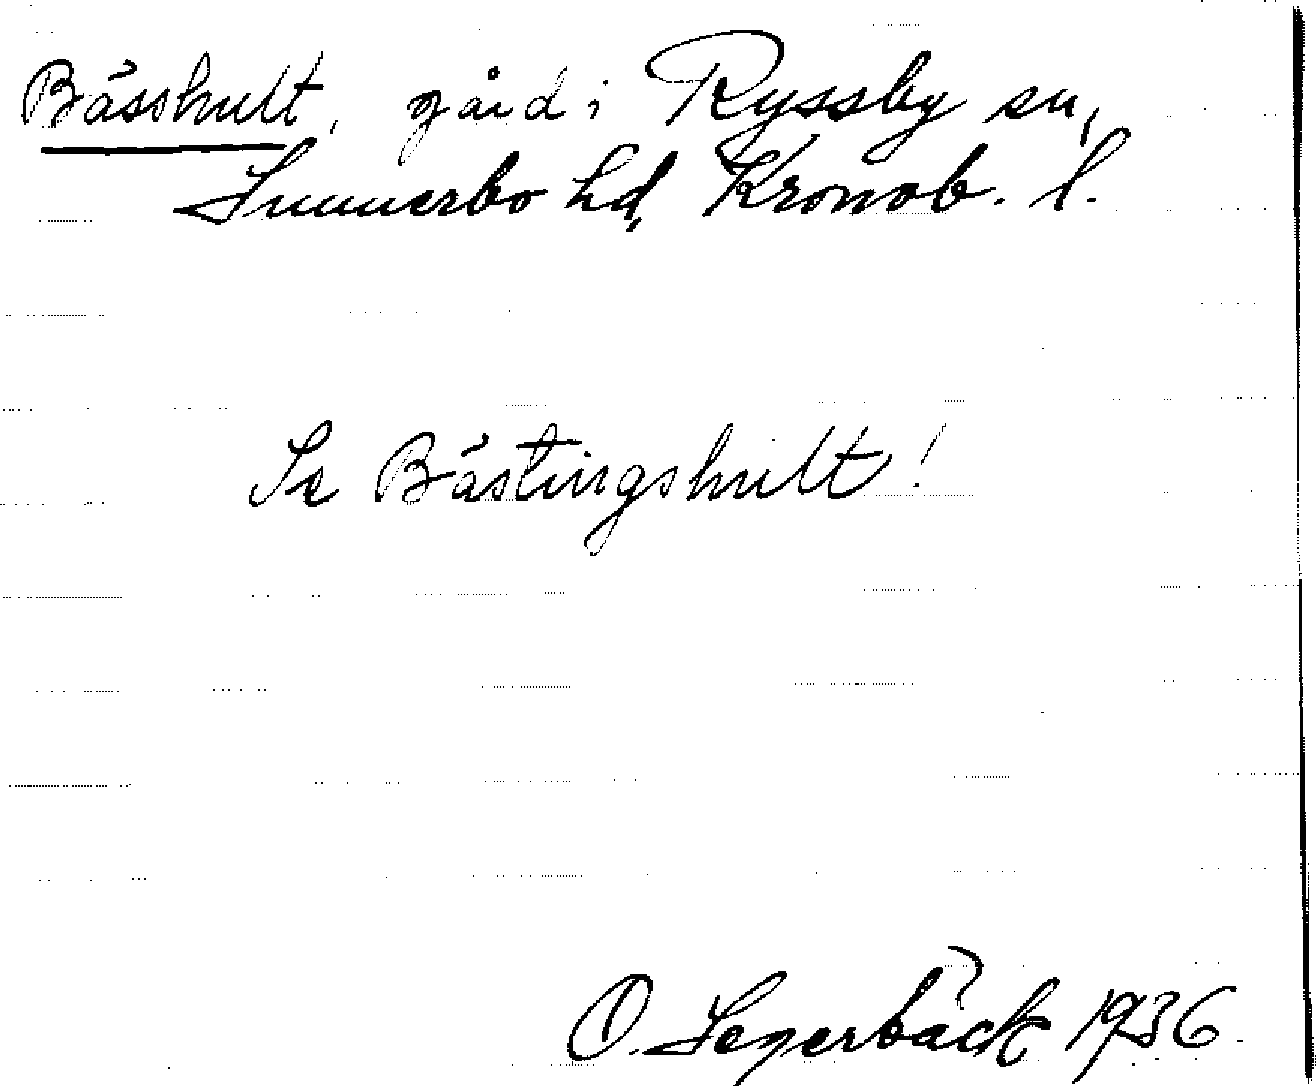 Bässhult, gård i Ryssby sn,
Sunnerbo hd, Kronob. l.
Se Bästingshult!
O. Segerbäck 1936